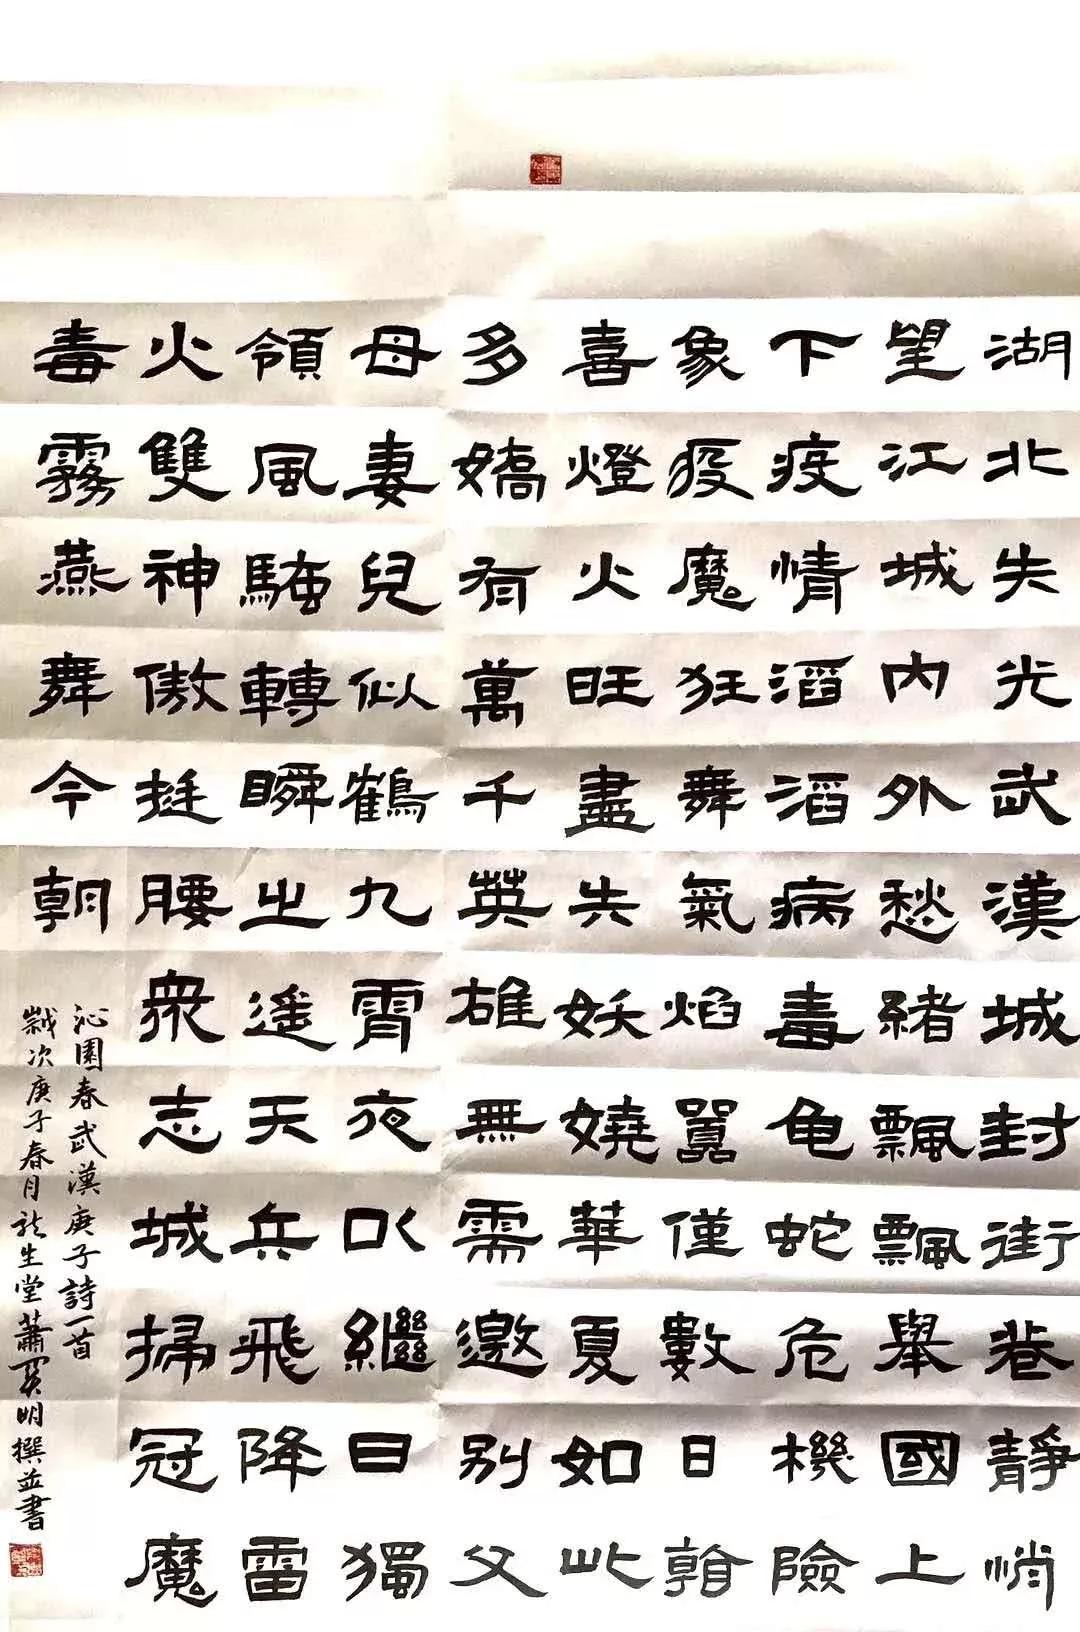 湖北失光武漢城封街巷靜悄
望江城内外愁緒飄飄舉國上
下疫情滔滔病毒龟蛇危機險
象疫魔狂舞氣焰囂僅數日
喜燈火旺盡失妖嬈華夏如此
多嬌有萬千英雄無需邀別父
母妻兒似鶴九霄夜以繼日獨
領風騷轉瞬之遥天兵飛降雷
火雙神傲挺腰衆志城掃冠魔
毒霧燕舞今朝
沁園春武漢庚子詩一首
歲次庚子春月生堂蕭明撰並書